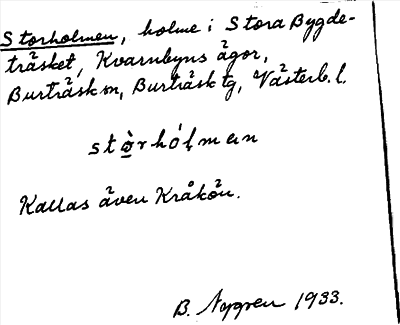 Storholmen, holme i Stora Bygde-
träsket, Kvarnbyns ägor,
Burträsk sn, Burträsk tg, Västerb. l.
stòrhólmən
Kallas även Kråkön.
B. Nygren 1933.